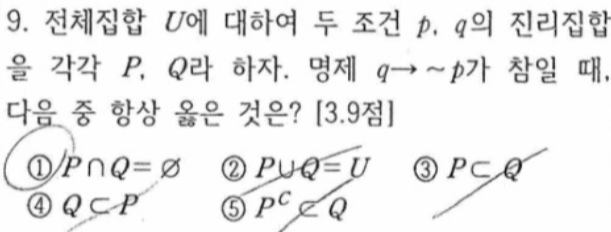 9. 전체집합 U에 대하여 두 조건 p, q의 진리집합
을 각각 P, Q라 하자. 명제 q→ ~p가 참일 때,
다음 중 항상 옳은 것은? [3.9점]
① P∩Q=∅ ② P∪Q=U ③ P⊂Q
④ Q⊂P ⑤ P^C⊂Q